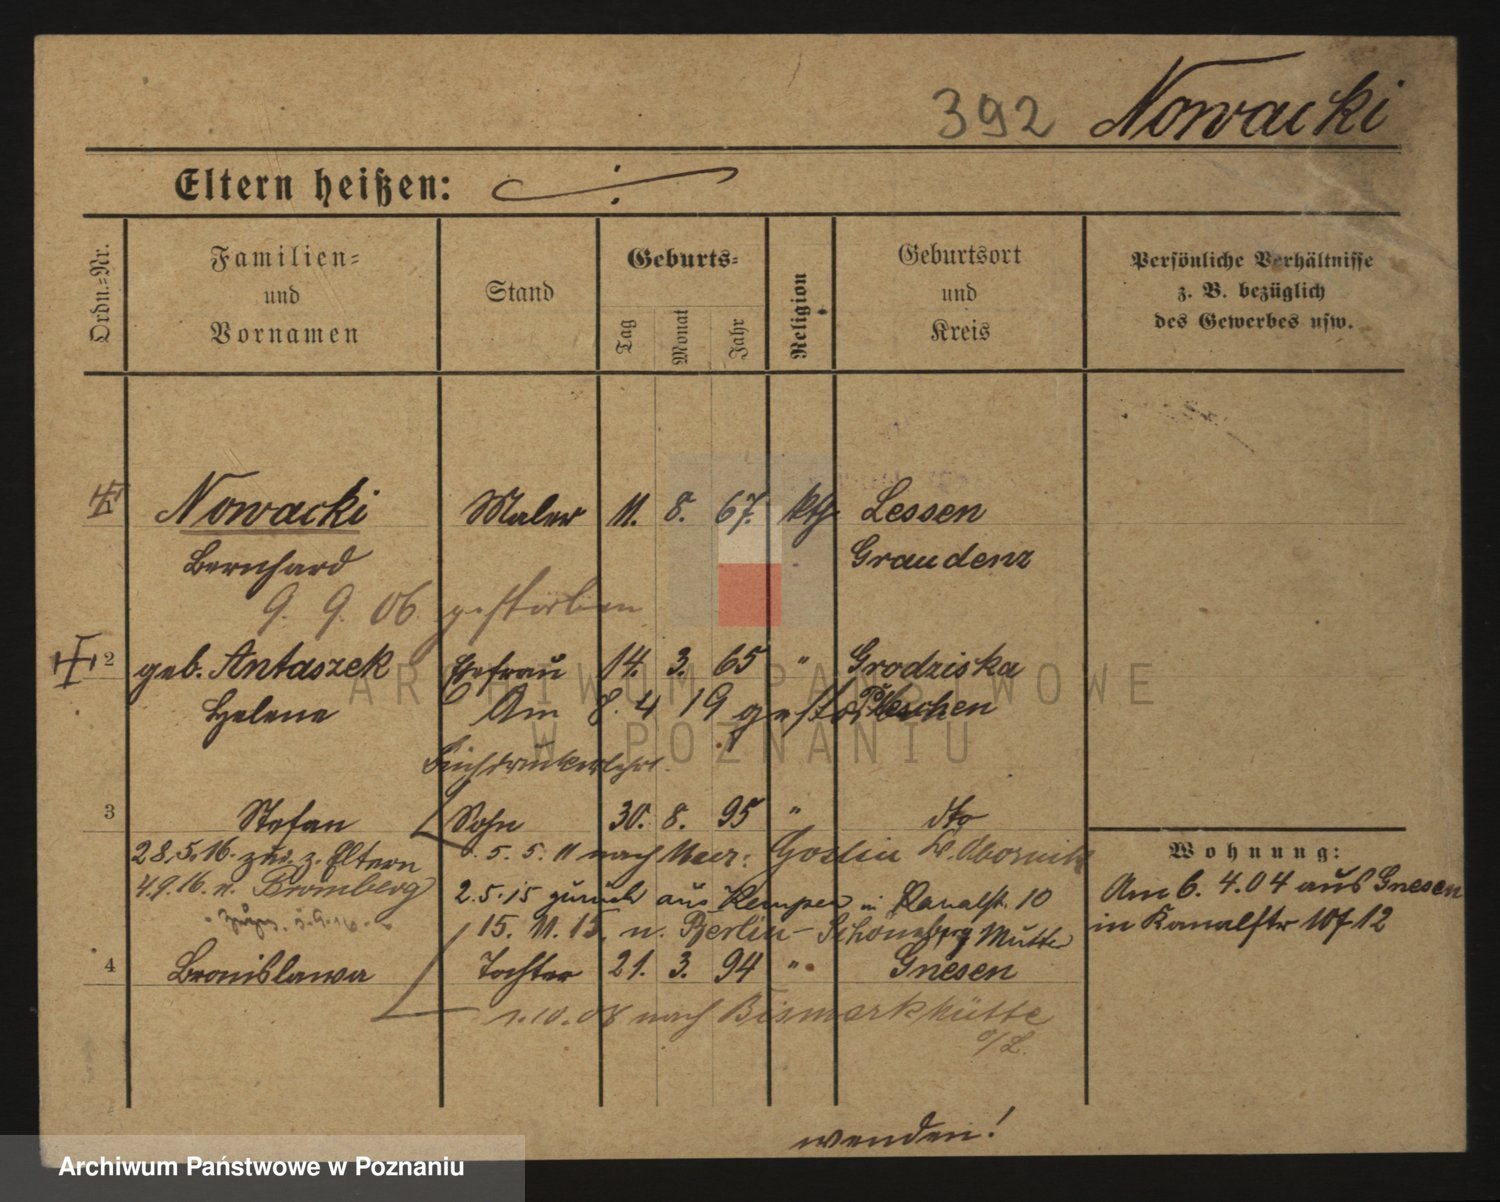 392 Nowacki
Eltern heißen: ./.
Ordn.=Nr.
Familien=
und
Vornamen
Stand
Geburts=
Tag
Monat
Jahr
Religion
Geburtsort
und
Kreis
Persönliche Verhältnisse
z. B. bezüglich
des Gewerbes usw.
Nowacki Maler 11. 8. 67. kth Lessen
Bernhard Graudenz
9. 9. 06 gestorben
2 geb. Antaszek Ehefrau 14. 3. 65 " Grodziska
Helene Pleschen
Am 8. 4 19 gestorben
Buchdruckerlehrl.
3 Stefan Sohn 30. 8. 95 " dto
28.5.16. zur. z. Eltern
5. 5. 11 nach Goslin Kr. Obornik
4.9.16. n. Bromberg
2.5.15 zurück aus Kempen in Kanalstr. 10
15. 11. 15. n. Berlin - Schöneberg Mutter
4 Bronislawa Tochter 21. 3. 94 " Gnesen
1.10.08 nach Bismarkhütte
o/L.
Wohnung:
Am 6. 4.04 aus Gnesen
in Kanalstr 10/12
wenden!
ARCHIWUM PAŃSTWOWE
W POZNANIU
Archiwum Państwowe w Poznaniu